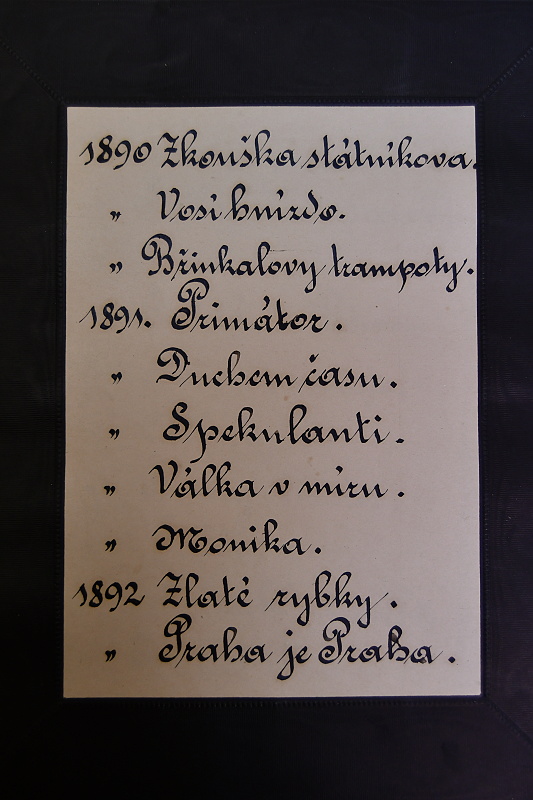 1890 Zkouška státníkova.
„ Vosí hnízdo.
„ Břinkalovy trampoty.
1891. Primátor.
„ Duchem času.
„ Spekulanti.
„ Válka v míru.
„ Monika.
1892 Zlaté rybky.
„ Praha je Praha.